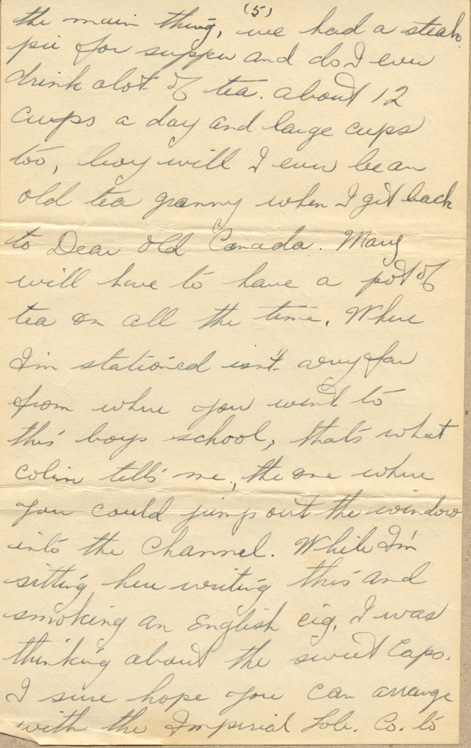 (5)
the main thing, we had a steak
pie for supper and do I ever
drink alot of tea. about 12
cups a day and large cups
too, boy will I ever be an
old tea granny when I git back
to Dear old Canada. Mary
will have to have a pot of
tea on all the time. Where
I'm stationed isn't a very far
from where you went to
this boys school, that's what
Colin tells me, the one where
you could jump out the window
into the Channel. While I'm
sitting here writing this and
smoking an English cig, I was
thinking about the sweet Caps.
I sure hope you can arrange
with the Imperial Tob. Co. to